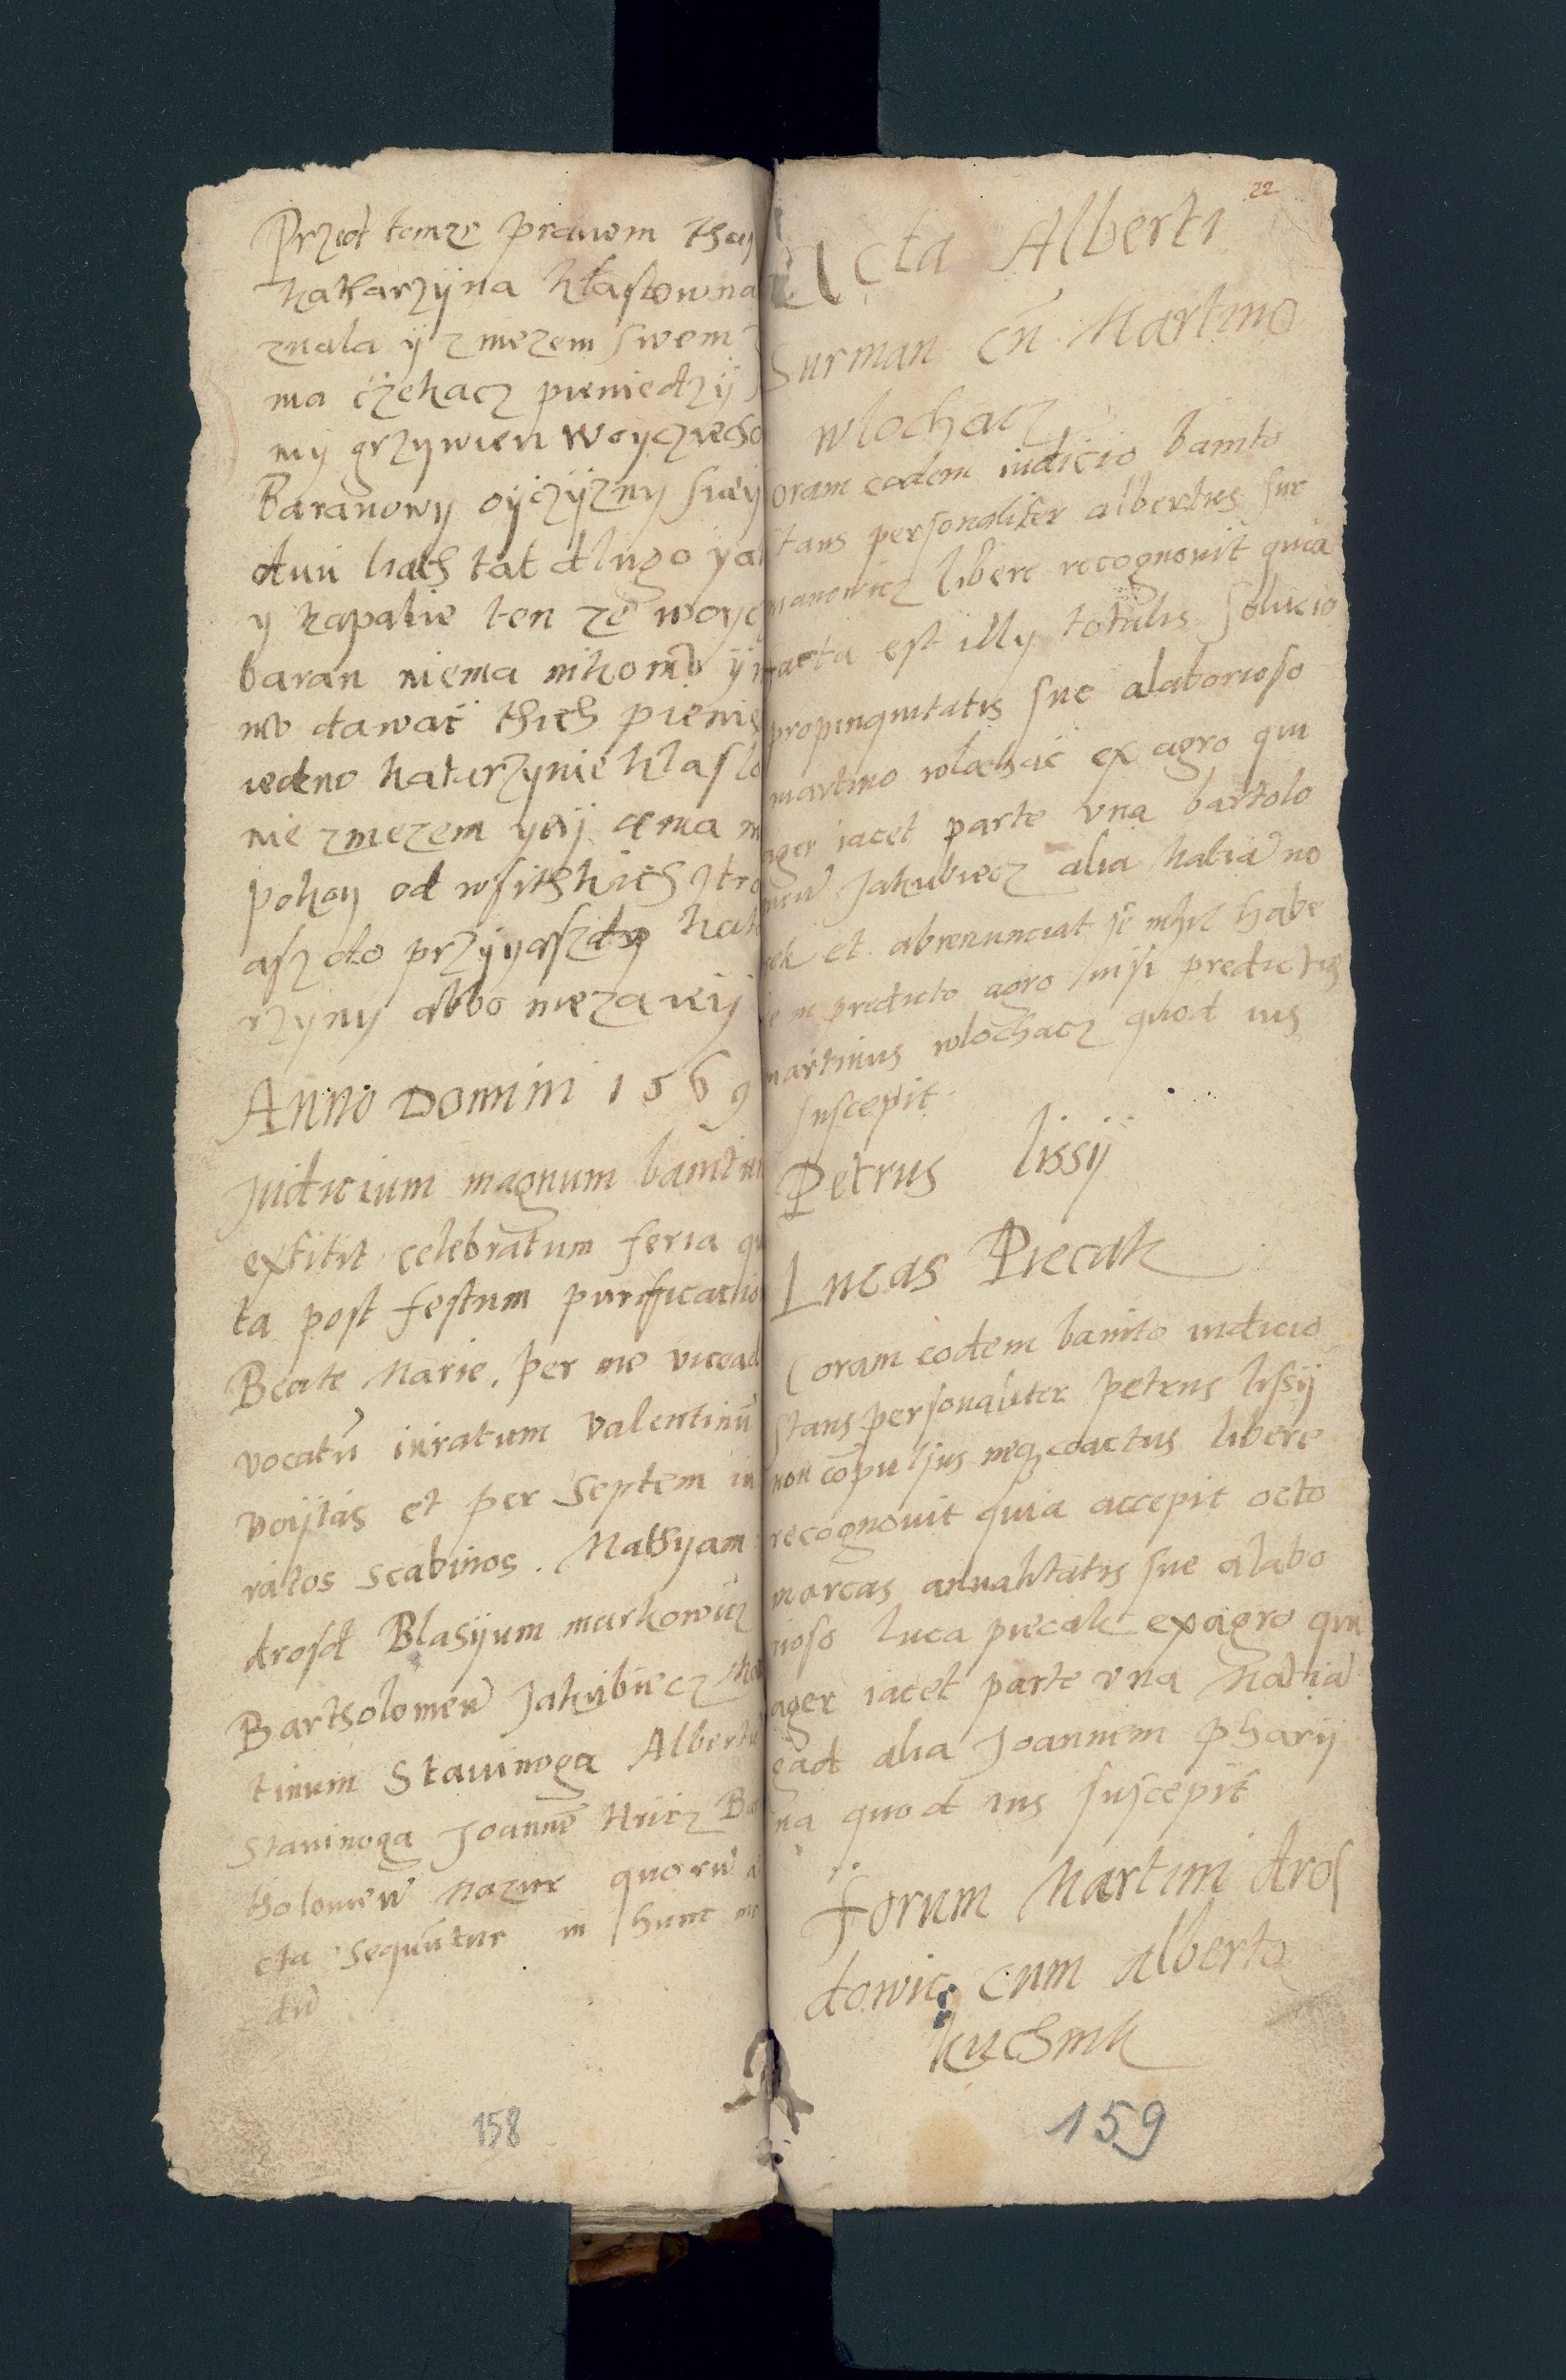 Przed temze prawem thay
Katharzÿna Klasowna
znala ÿ z mezem swem
ma cżekacz pieniedzÿ
mÿ grzywien woyczecho
Baranowÿ oÿczÿznÿ swÿ
dwu liath tak dlugo ya
y zapalie ten ze woyc
baran niema nikomv ÿn
mv dawać thich pienie
iedno katarzynie klaslo
nie z mezem yeÿ a ma m
pokoy od wsithkich stro
asz do przÿyasdv kath
rzynÿ abbo meza ieÿ
Anno Domini 1569
Judicium magnum banitu
extitit celebratum feria qu
ta post festum purifficatio
Beate Marie, per me vicead
vocatũ iuratum Valentinũ
Voÿtas et per Septem iu
ratos Scabinos. Mathyam
drosd Blasÿum markowicz
Bartholomeũ Jakubiecz Mar
tinum Stawinoga Albertu
Stawinoga Joannẽ Kricz Bar
tholomeũ Mazur quorũ a
cta sequũtur in hunc mo
dũ
158
22
Acta Alberti
Surman cũ Martino
wlochacz
oram eodem iudicio banito
stans personaliter albertus sur
manowicz libere recognouit quia
facta est illy totalis solucio
propinquitatis sue a laborioso
martino wlochać ex agro qui
ager iacet parte vna bartolo
meũ Jakubiecz alia haliã no
ek et abrenunciat se nihil habe
re in predicto agro nisi predictus
martinus wlochacz quod ius
suscepit
Petrus lissÿ
Lucas Piecak
Coram eodem banito iudicio
stans personaliter petrus lissÿ
non cõpulsus neqз coactus libere
recognouit quia accepit octo
marcas anualitatis sue a labo
rioso luca piecak ex agro qui
ager iacet parte vna Mathiã
gad alia Joannem pharÿ
na quod ius suscepit
Forum Martini dros
dowic cum alberto
kuchmik
159